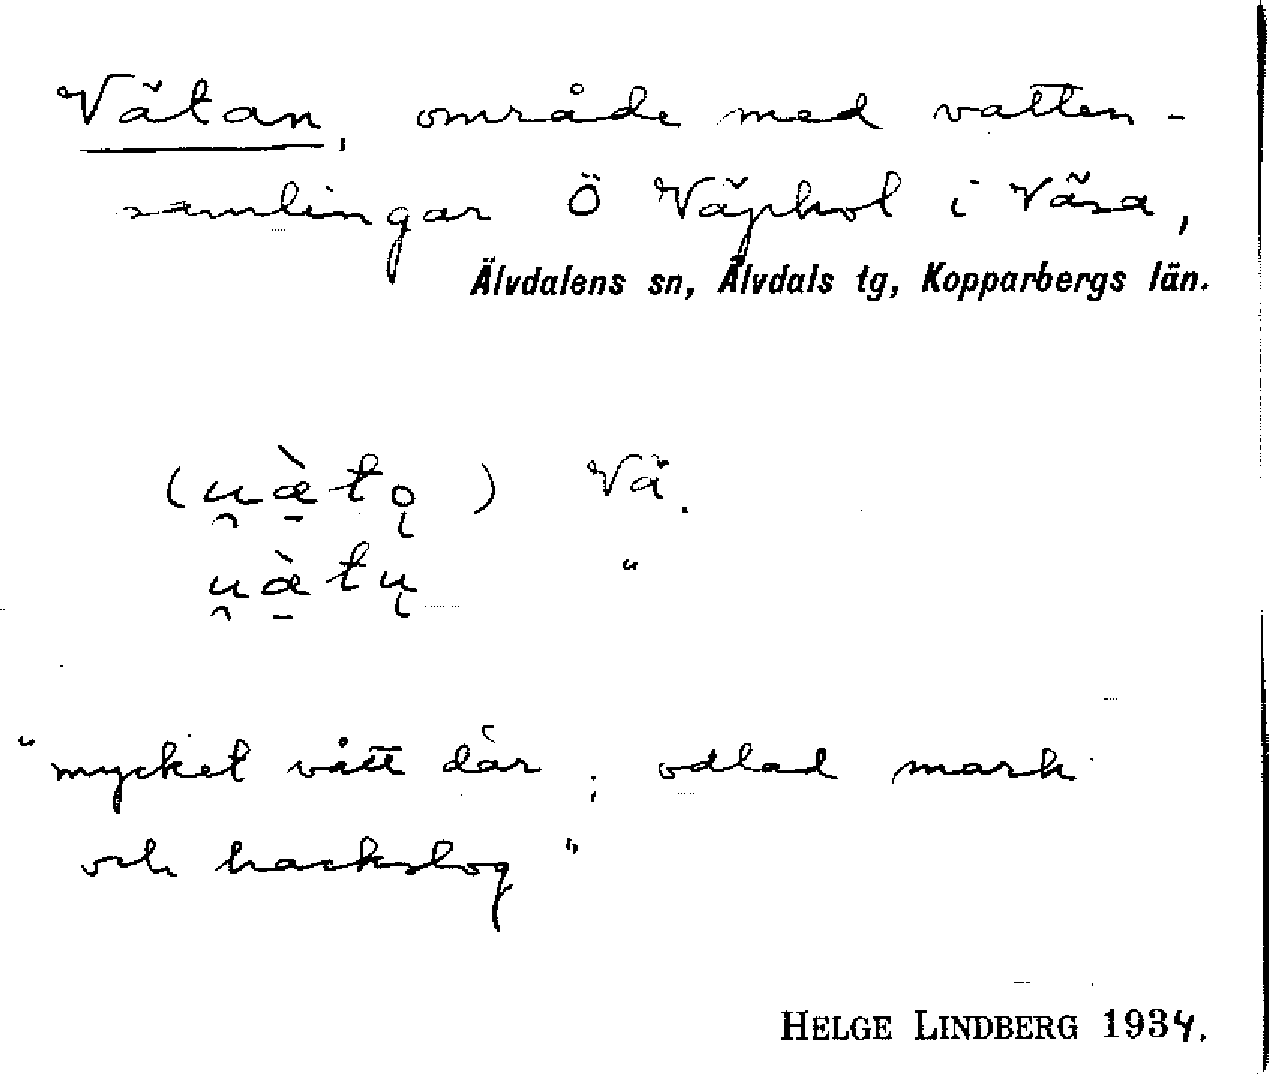 Vätan, område med vatten-
samlingar Ö Väphol i Väsa,
Älvdalens sn, Älvdals tg, Kopparbergs län.
(u̯æ̱̀tǫ) Vä.
u̯æ̱̀tų "
"mycket vått där; odlad mark
och hackslog"
HELGE LINDBERG 1934.